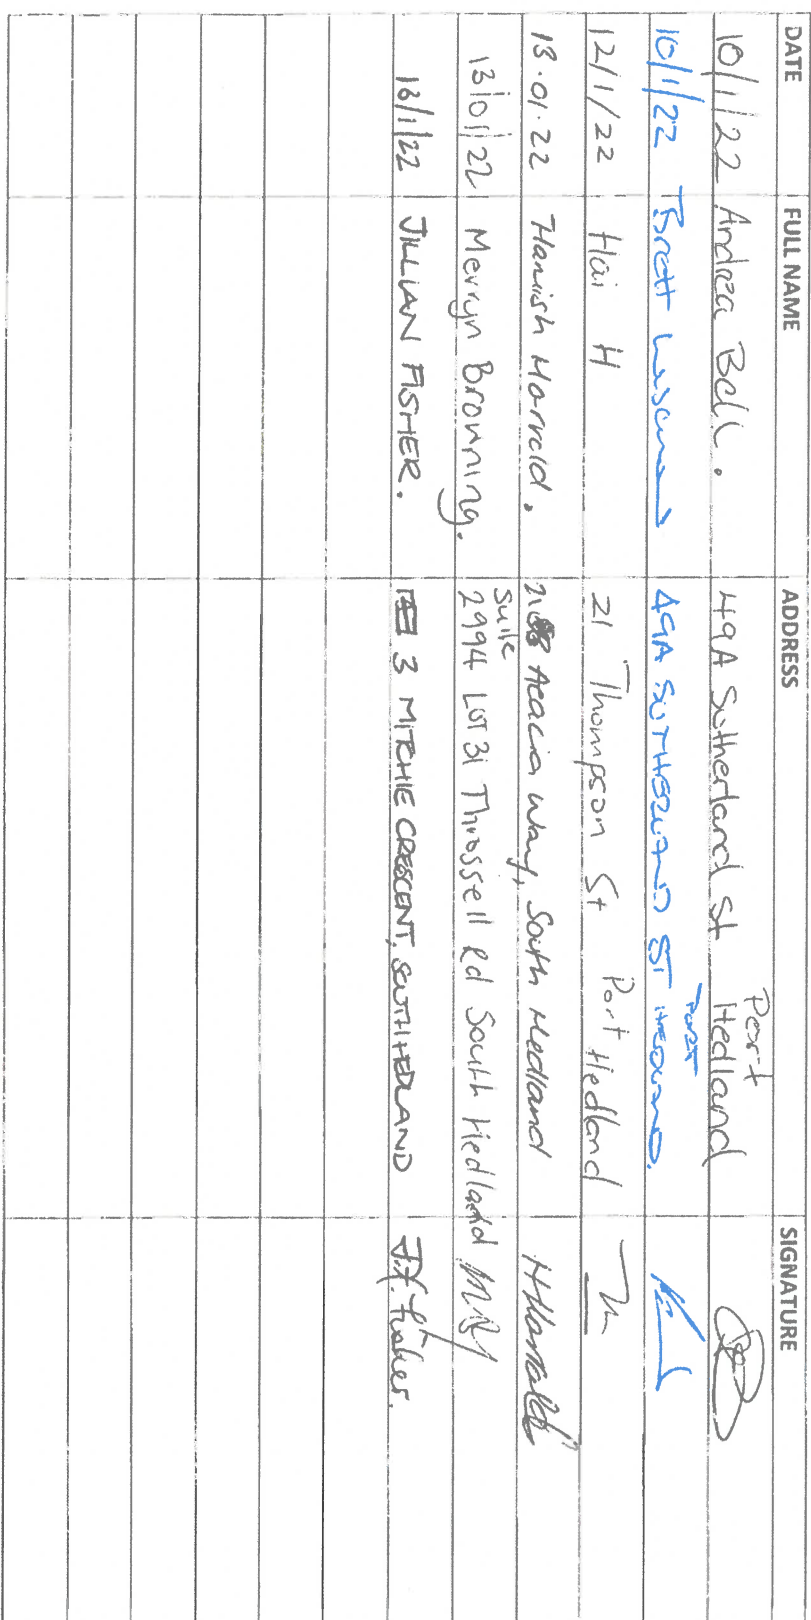 DATE FULL NAME ADDRESS SIGNATURE
10/1/22 Andrea Bell. 49A Sutherland St Port Hedland
10/1/22 Brett 49A SUTHERLAND ST PORT HEDLAND.
12/1/22 Hai H 21 Thompson St Port Hedland
13.01.22 Hamish Harrald. Acacia Way, South Hedland HHarrald
13/01/22 Merryn Browning. Suite 2994 LOT 31 Throssell Rd South Hedland
13/1/22 JILLIAN FISHER. 3 MITCHIE CRESCENT, SOUTH HEDLAND J.F. Fisher.